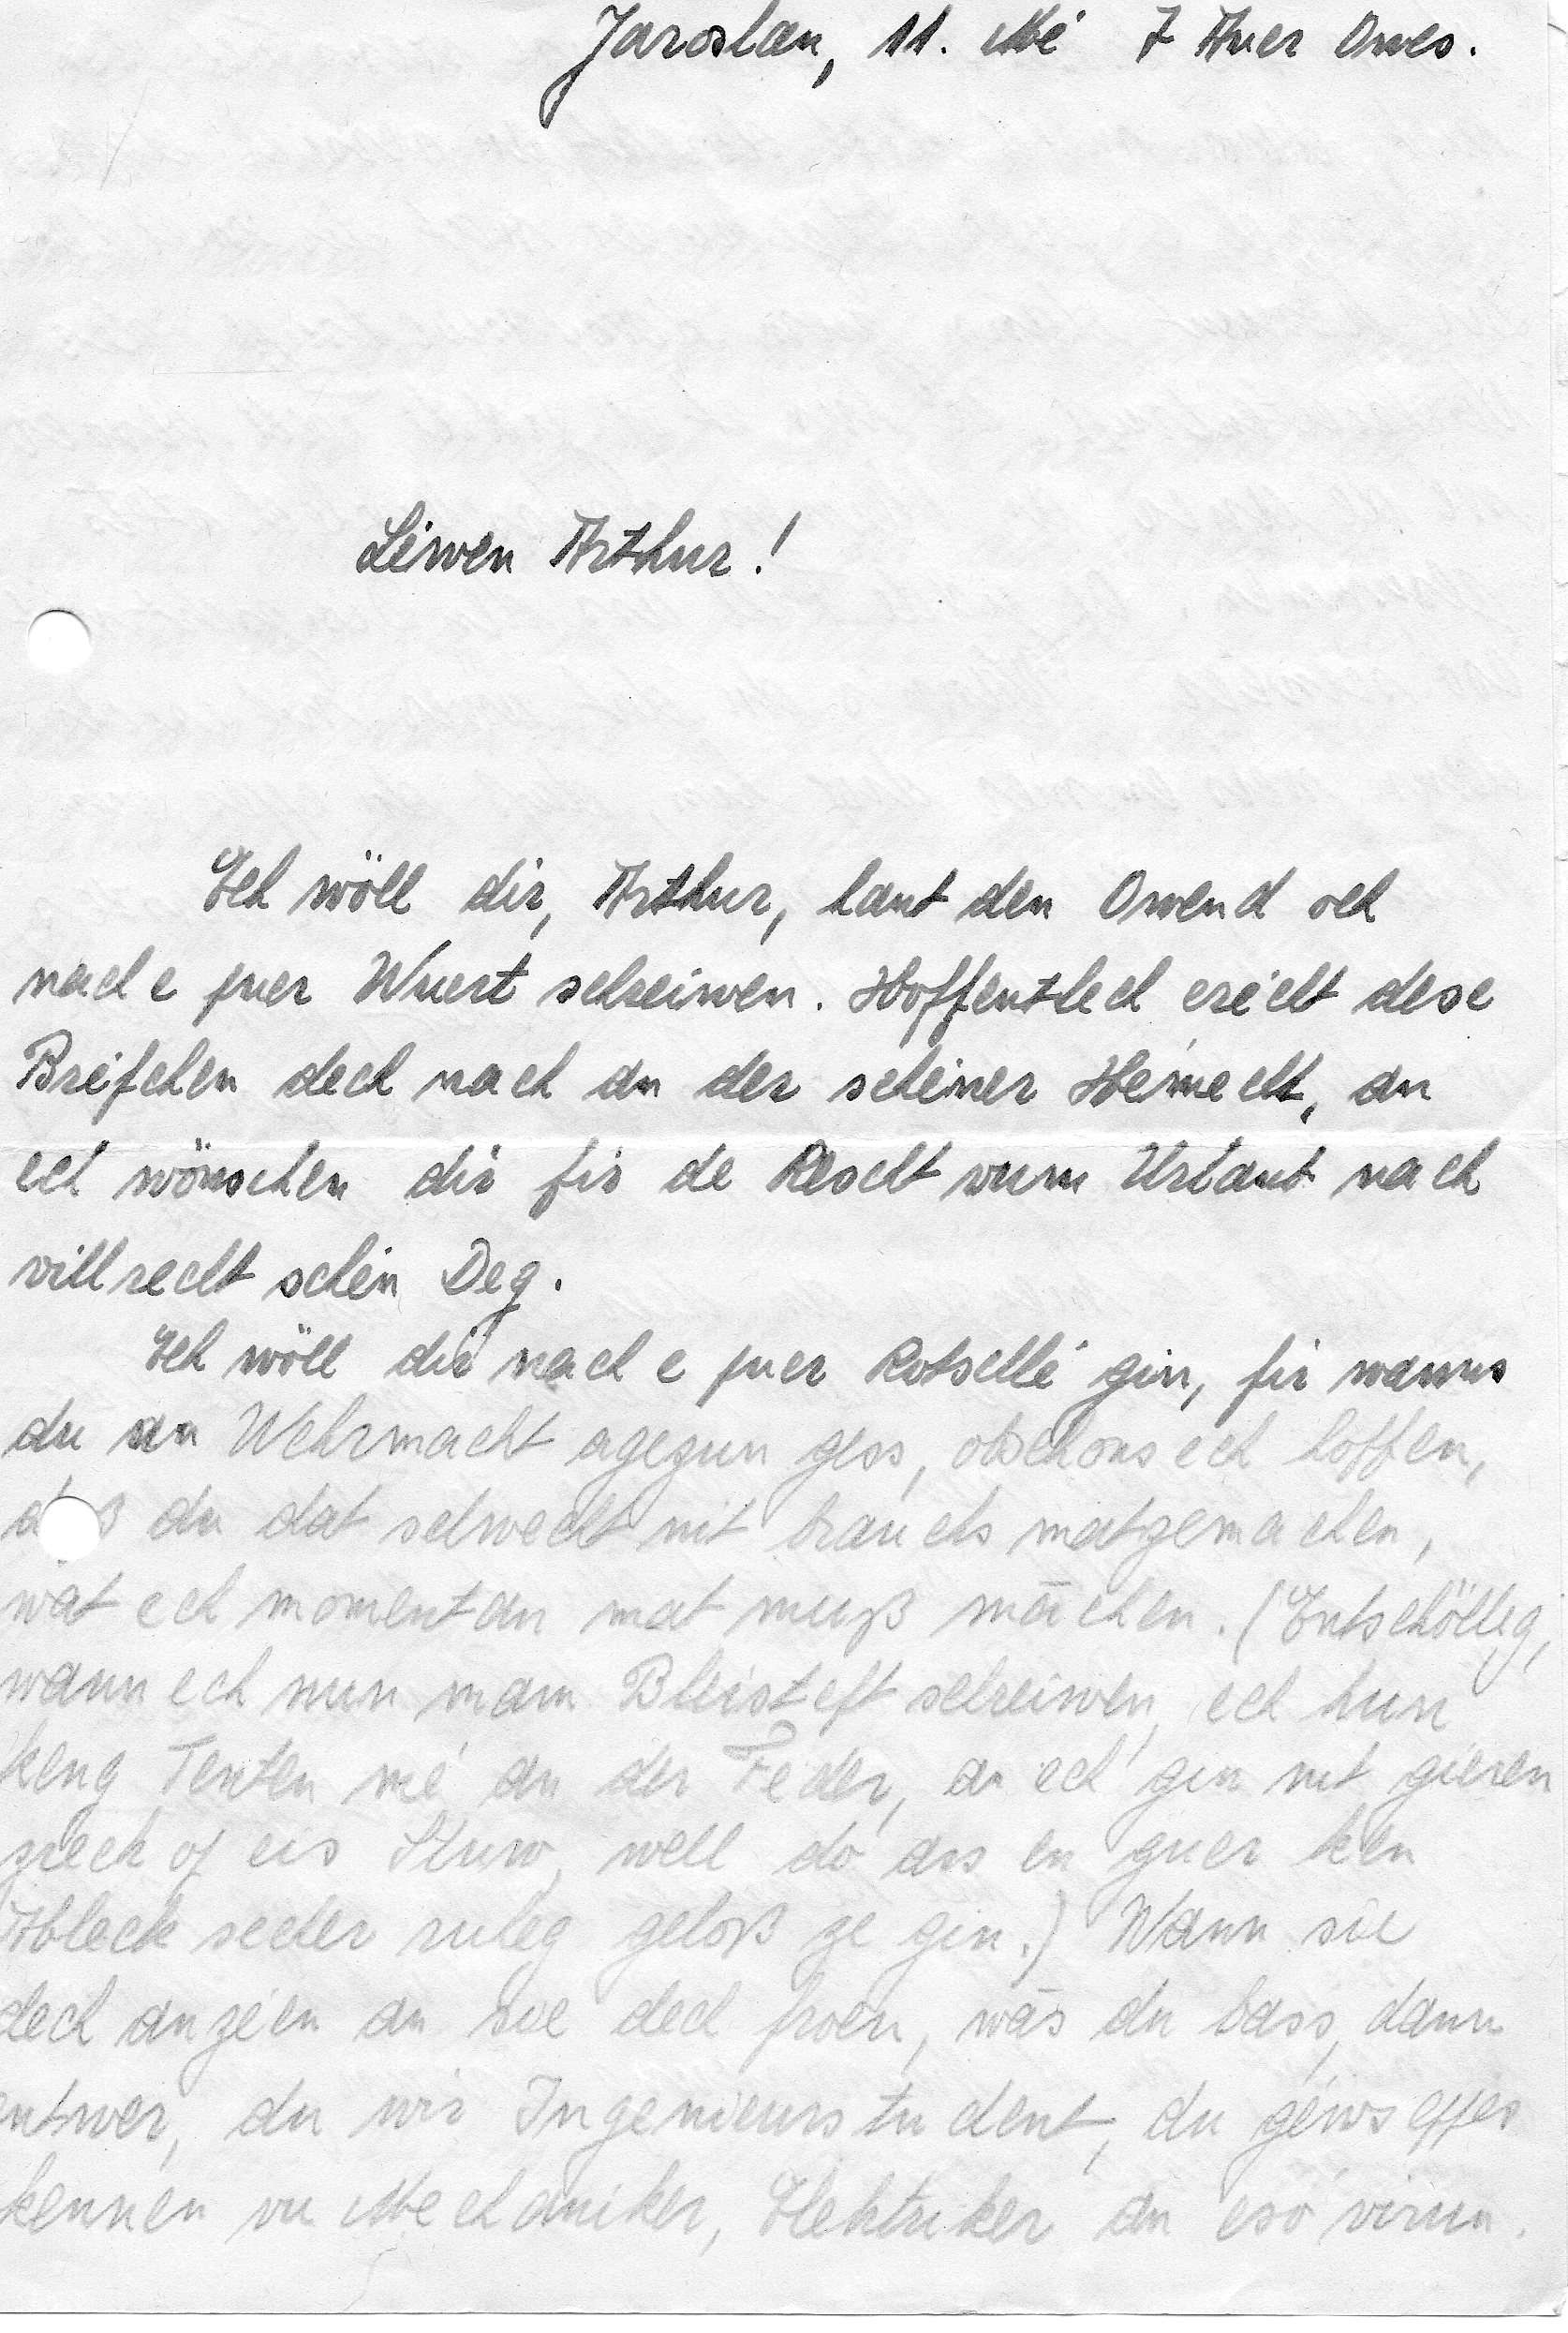 Jaroslau, 11. Mé 7 Auer Owes.
Léwen Arthur!
Ech wöll dir, Arthur, haut den Owend och
nach e puer Wuert schreiwen. Hoffentlech erécht dese
Bréfchen dech nach an der schéiner Hémecht, an
ech wönschen dir fir de Rescht vum Urlaub nach
vill recht schén Deg.
Ech wöll dir nach e puer Rotschlé gin, fir wanns
du an Wehrmacht agezun gess, obschons ech hoffen,
daß du dat selwecht nit brauchs matzemachen,
wat ech momentan mat muß māchen. (Entschölleg,
wann ech nun mam Bleisteft schreiwen, ech hun
keng Tenten mé an der Feder, an ech gin nit gieren
zreck of eis Stuw, well do ass en guer ken
Ableck secher ruheg geloß ze gin.) Wann sie
dech anzéen an sie dech froen, wās du bass, dann
entwer, du wir Ingenieurstudent, du géws eppes
kennen vu Mechaniker, Elektriker an esó virun.